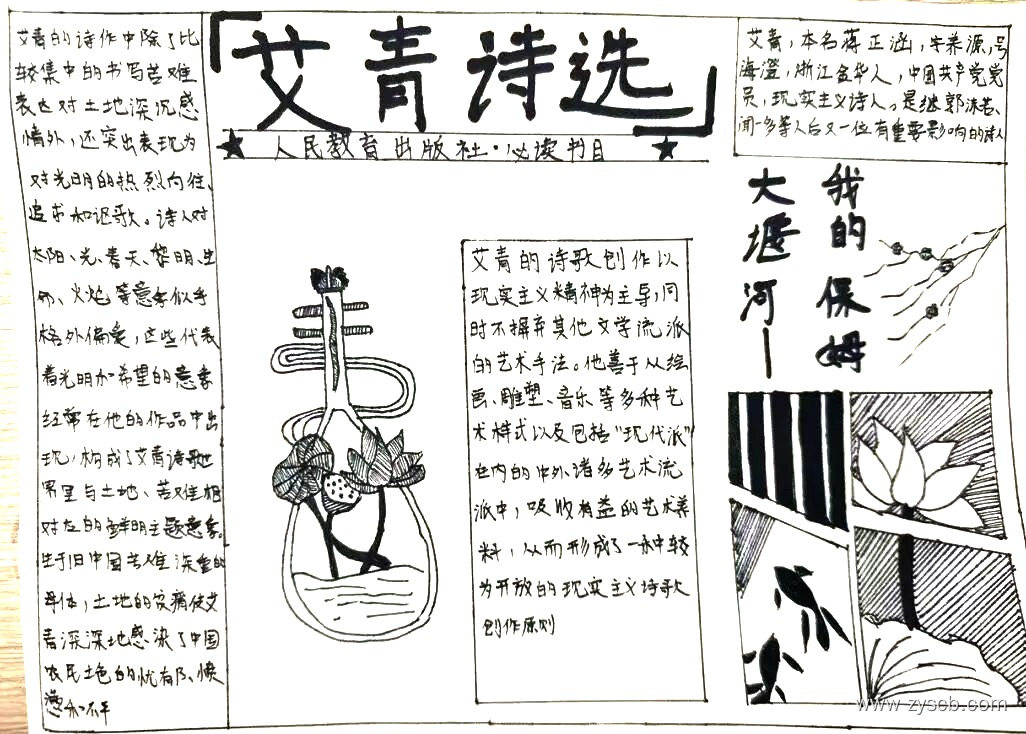 「艾青诗选」
★人民教育出版社·必读书目★
艾青的诗作中除了比
较集中的书写苦难
表达对土地深沉感
情外，还突出表现为
对光明的热烈向往、
追求和讴歌。诗人对
太阳、光、春天、黎明、生
命、火焰等意象似乎
格外偏爱，这些代表
着光明和希望的意象
经常在他的作品中出
现，构成了艾青诗歌世
界里与土地、苦难相
对应的鲜明主题意象。
生于旧中国苦难深重的
母体，土地的哀痛使艾
青深深地感染了中国
农民土色的忧郁、
和不平
艾青的诗歌创作以
现实主义精神为主导，同
时不摒弃其他文学流派
的艺术手法。他善于从绘
画、雕塑、音乐等多种艺
术样式以及包括“现代派”
在内的中外诸多艺术流
派中，吸收有益的艺术养
料，从而形成了一种较
为开放的现实主义诗歌
创作原则
艾青，本名蒋正涵，字养源，号
海澄，浙江金华人，中国共产党党
员，现实主义诗人。是继郭沫若、
闻一多等人后又一位有重要影响的诗人
大堰河—
我的保姆
www.zyseb.com